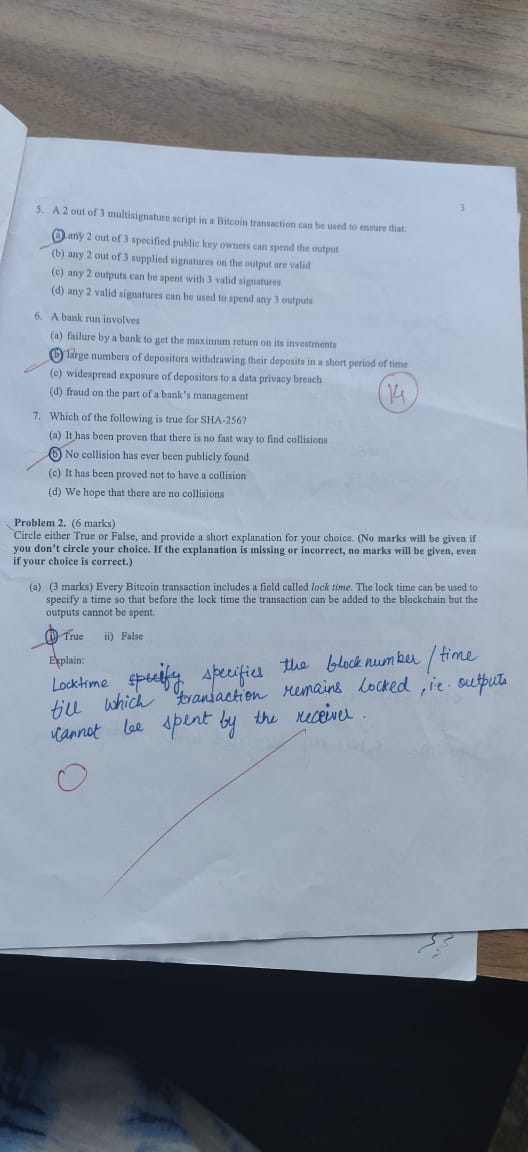 3
5. A 2 out of 3 multisignature script in a Bitcoin transaction can be used to ensure that:
(a) any 2 out of 3 specified public key owners can spend the output
(b) any 2 out of 3 supplied signatures on the output are valid
(c) any 2 outputs can be spent with 3 valid signatures
(d) any 2 valid signatures can be used to spend any 3 outputs
6. A bank run involves
(a) failure by a bank to get the maximum return on its investments
(b) large numbers of depositors withdrawing their deposits in a short period of time
(c) widespread exposure of depositors to a data privacy breach
(d) fraud on the part of a bank's management
14
7. Which of the following is true for SHA-256?
(a) It has been proven that there is no fast way to find collisions
(b) No collision has ever been publicly found
(c) It has been proved not to have a collision
(d) We hope that there are no collisions
Problem 2. (6 marks)
Circle either True or False, and provide a short explanation for your choice. (No marks will be given if
you don't circle your choice. If the explanation is missing or incorrect, no marks will be given, even
if your choice is correct.)
(a) (3 marks) Every Bitcoin transaction includes a field called lock time. The lock time can be used to
specify a time so that before the lock time the transaction can be added to the blockchain but the
outputs cannot be spent.
i) True ii) False
Explain:
Locktime specify specifies the block number / time
till which transaction remains locked, i.e. outputs
cannot be spent by the receiver.
0